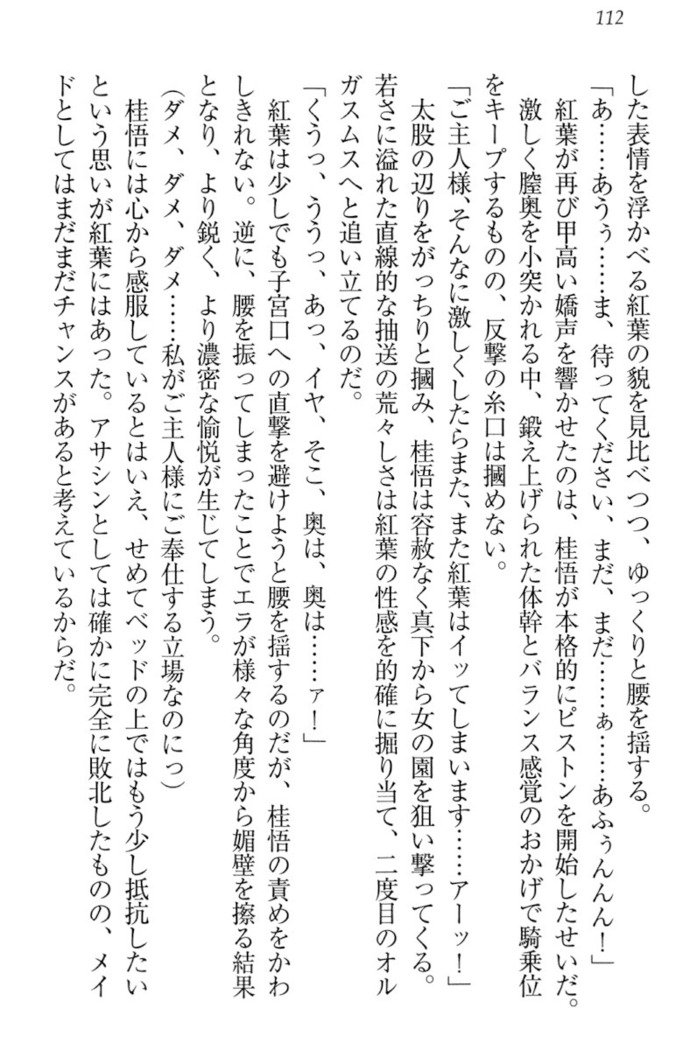 112
した表情を浮かべる紅葉の貌を見比べつつ、ゆっくりと腰を揺する。
「あ……あうぅ……ま、待ってください、まだ、まだ……ぁ……あふぅんんん！」
紅葉が再び甲高い嬌声を響かせたのは、桂悟が本格的にピストンを開始したせいだ。
激しく膣奥を小突かれる中、鍛え上げられた体幹とバランス感覚のおかげで騎乗位
をキープするものの、反撃の糸口は摑めない。
「ご主人様、そんなに激しくしたらまた、また紅葉はイッてしまいます……アーッ！」
太股の辺りをがっちりと摑み、桂悟は容赦なく真下から女の園を狙い撃ってくる。
若さに溢れた直線的な抽送の荒々しさは紅葉の性感を的確に掘り当て、二度目のオル
ガスムスへと追い立てるのだ。
「くうっ、ううっ、あっ、イヤ、そこ、奥は、奥は……ァ！」
紅葉は少しでも子宮口への直撃を避けようと腰を揺するのだが、桂悟の責めをかわ
しきれない。逆に、腰を振ってしまったことでエラが様々な角度から媚壁を擦る結果
となり、より鋭く、より濃密な愉悦が生じてしまう。
（ダメ、ダメ、ダメ……私がご主人様にご奉仕する立場なのにっ）
桂悟には心から感服しているとはいえ、せめてベッドの上ではもう少し抵抗したい
という思いが紅葉にはあった。アサシンとしては確かに完全に敗北したものの、メイ
ドとしてはまだまだチャンスがあると考えているからだ。